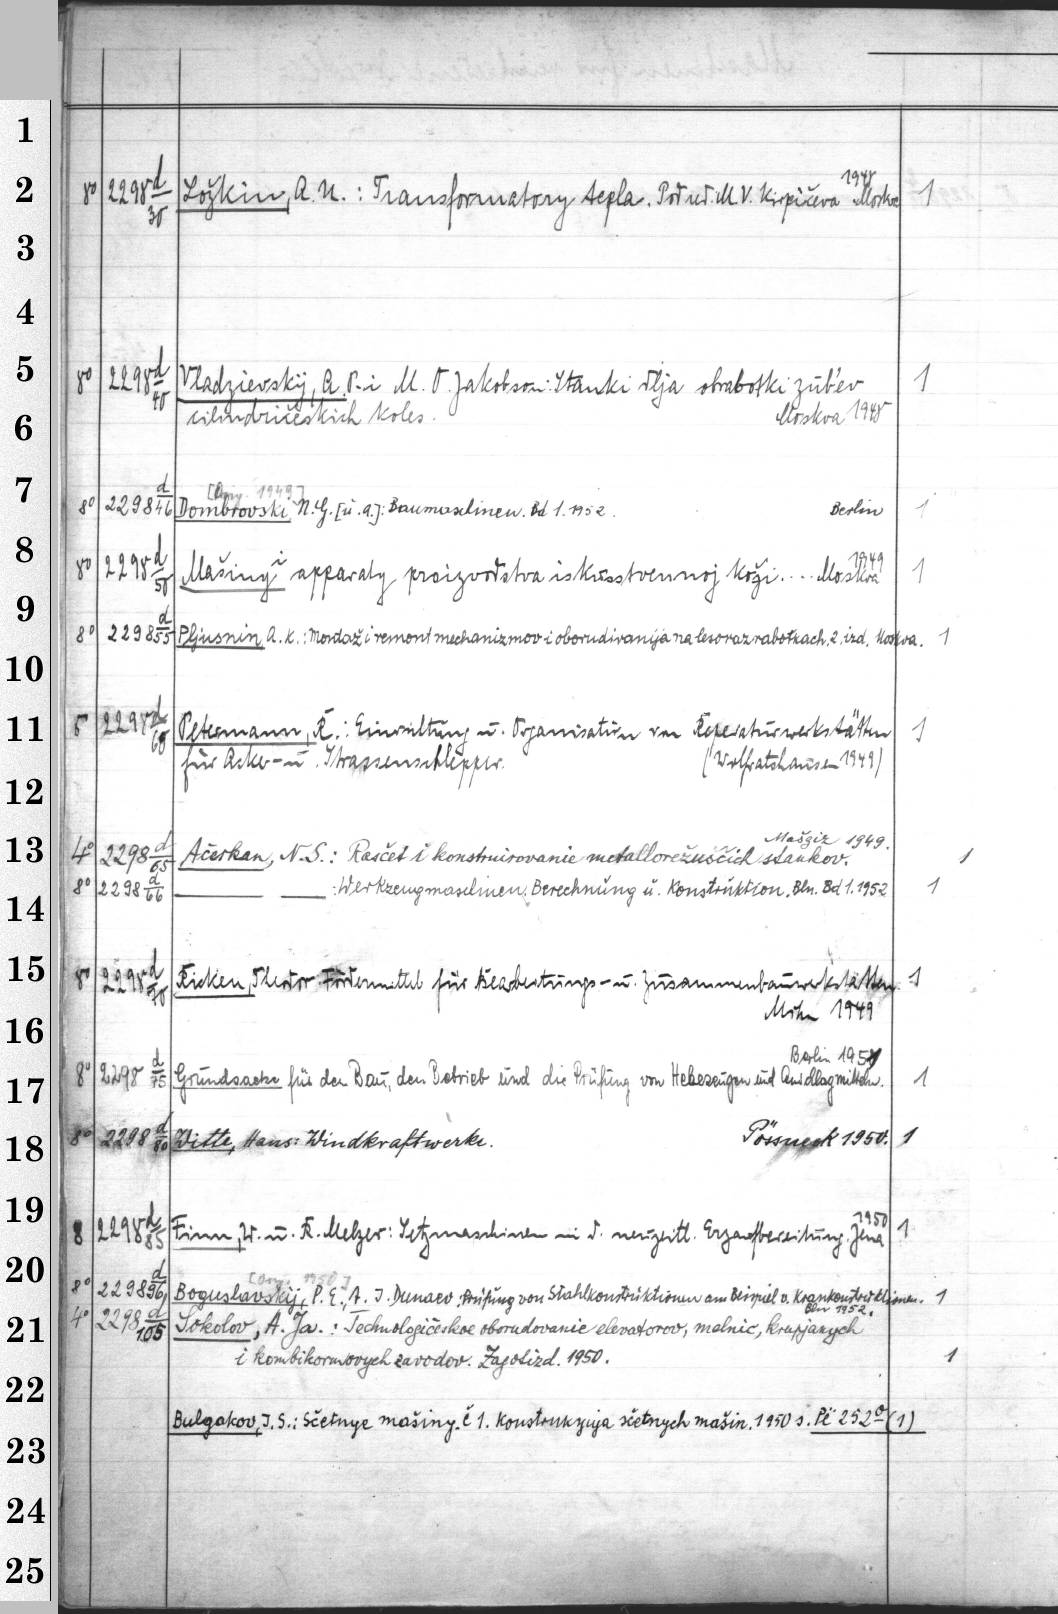 1
2
8° 2298 d/30 Ložkin, A. N.: Transformatory tepla. Pod red. M. V. Kirpičeva 1948 Moskva 1
3
4
5
8° 2298 d/40 Vladzievskij, A. P. i M. O. Jakobson: Stanki dlja obrabotki zub'ev 1
6
cilindričeskich koles. Moskva 1948
7
[Ang. 1949]
8° 2298 d/46 Dombrovski, N. G. [u. a.]: Baumaschinen. Bd 1. 1952. Berlin 1
8
8° 2298 d/50 Mašiny i apparaty proizvodstva iskusstvennoj koži.... Moskva 1949 1
9
8° 2298 d/55 Pljusnin, A. K.: Montaž i remont mechanizmov i oborudivanija na lesorazrabotkach. 2. izd. Moskva. 1
10
11
8° 2298 d/60 Petermann, R.: Einrichtung u. Organisation von Reperaturwerkstätten 1
für Acker- u. Strassenschlepper. (Wolfratshausen 1949)
12
13
4° 2298 d/65 Ačerkan, N. S.: Rasčet i konstruirovanie metallorežuščich stankov. Mašgiz 1949. 1
8° 2298 d/66 —— —— : Werkzeugmaschinen. Berechnung u. Konstruktion. Bln. Bd 1. 1952 1
14
15
8° 2298 d/70 Ricken, Theodor: Fördermittel für Bearbeitungs- u. Zusammenbauwerkstätten. 1
16
1949
Berlin 1951
17
8° 2298 d/75 Grundsaetze für den Bau, den Betrieb und die Prüfung von Hebezeugen und Anschlagmitteln. 1
18
8° 2298 d/80 Witte, Hans: Windkraftwerke. Pössneck 1950. 1
19
8 2298 d/85 Finn, W. u. R. Melzer: Setzmaschinen in d. neuzeitl. Erzaufbereitung. Jena 1950 1
20
[Ang. 1950]
8° 2298 d/96 Boguslavskij, P. E., A. I. Dunaev: Prüfung von Stahlkonstruktionen am Beispiel v. Krankonstruktionen. Bln 1952. 1
21
4° 2298 d/105 Sokolov, A. Ja.: Technologičeskoe oborudovanie elevatorov, melnic, krupjanych
i kombikormovych zavodov. Zagotizd. 1950. 1
22
Bulgakov, I. S.: Sčetnye mašiny. č 1. Konstrukzija sčetnych mašin. 1950 s. Pč 252 a (1)
23
24
25